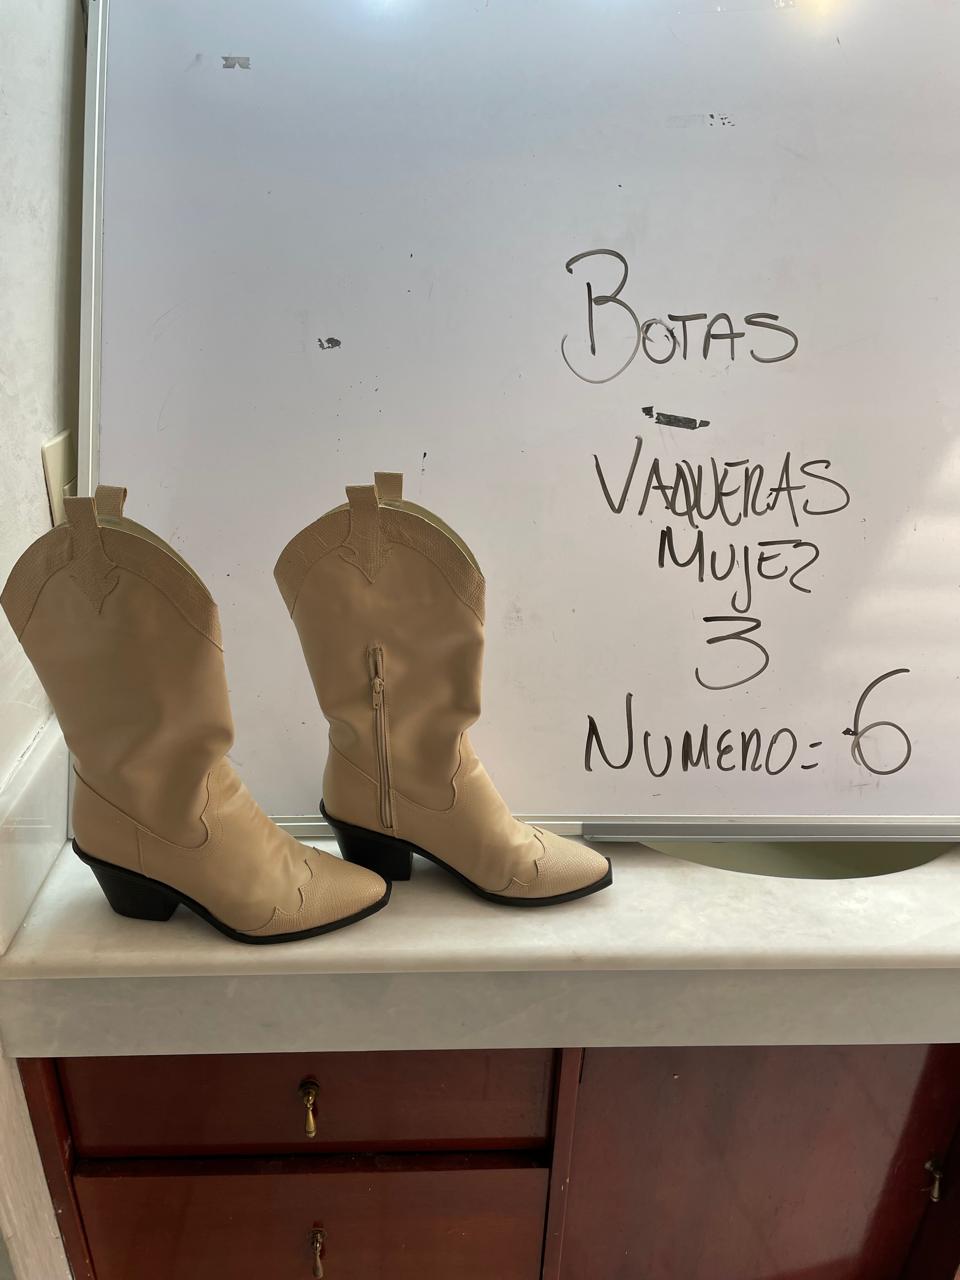 BOTAS
-
VAQUERAS
MUJER
3
NUMERO = 6